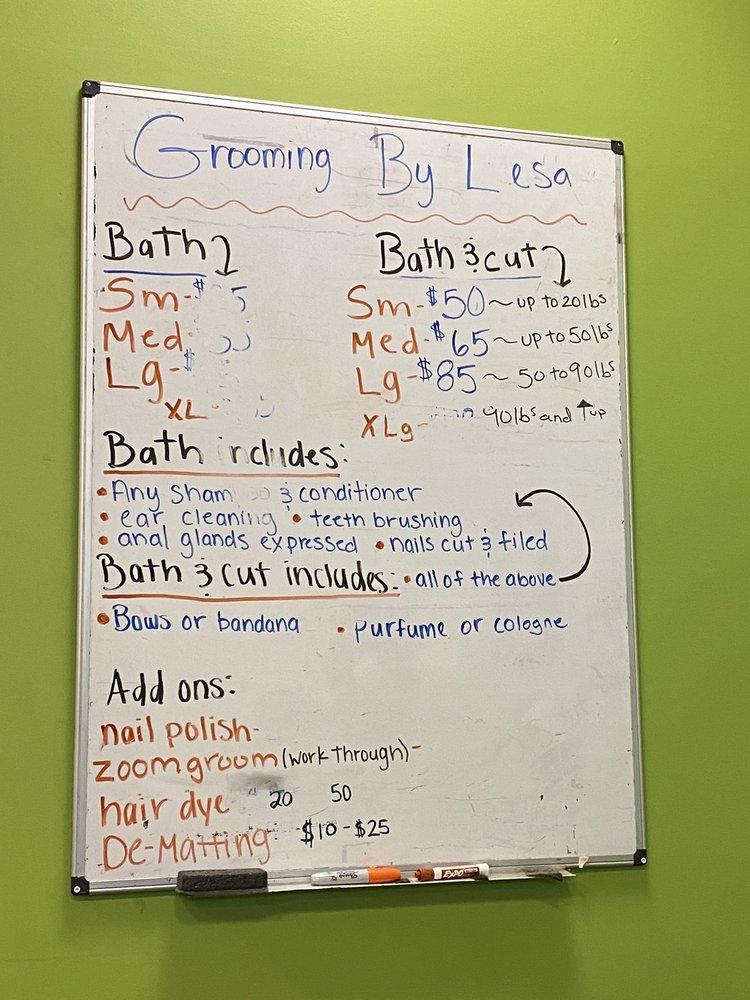 Grooming By Lesa
Bath
Sm-$
Med
Lg-$
XL
Bath & cut
Sm-$50~up to 20lbs
Med-$65~up to 50lbs
Lg-$85~50 to 90lbs
XLg- 90lbs and up
Bath includes:
• Any & conditioner
• ear cleaning • teeth brushing
• anal glands expressed • nails cut & filed
Bath & cut includes: • all of the above
• Bows or bandana • purfume or cologne
Add ons:
nail polish-
zoomgroom (work through)-
hair dye 20 50
De-Matting $10-$25
EXPO